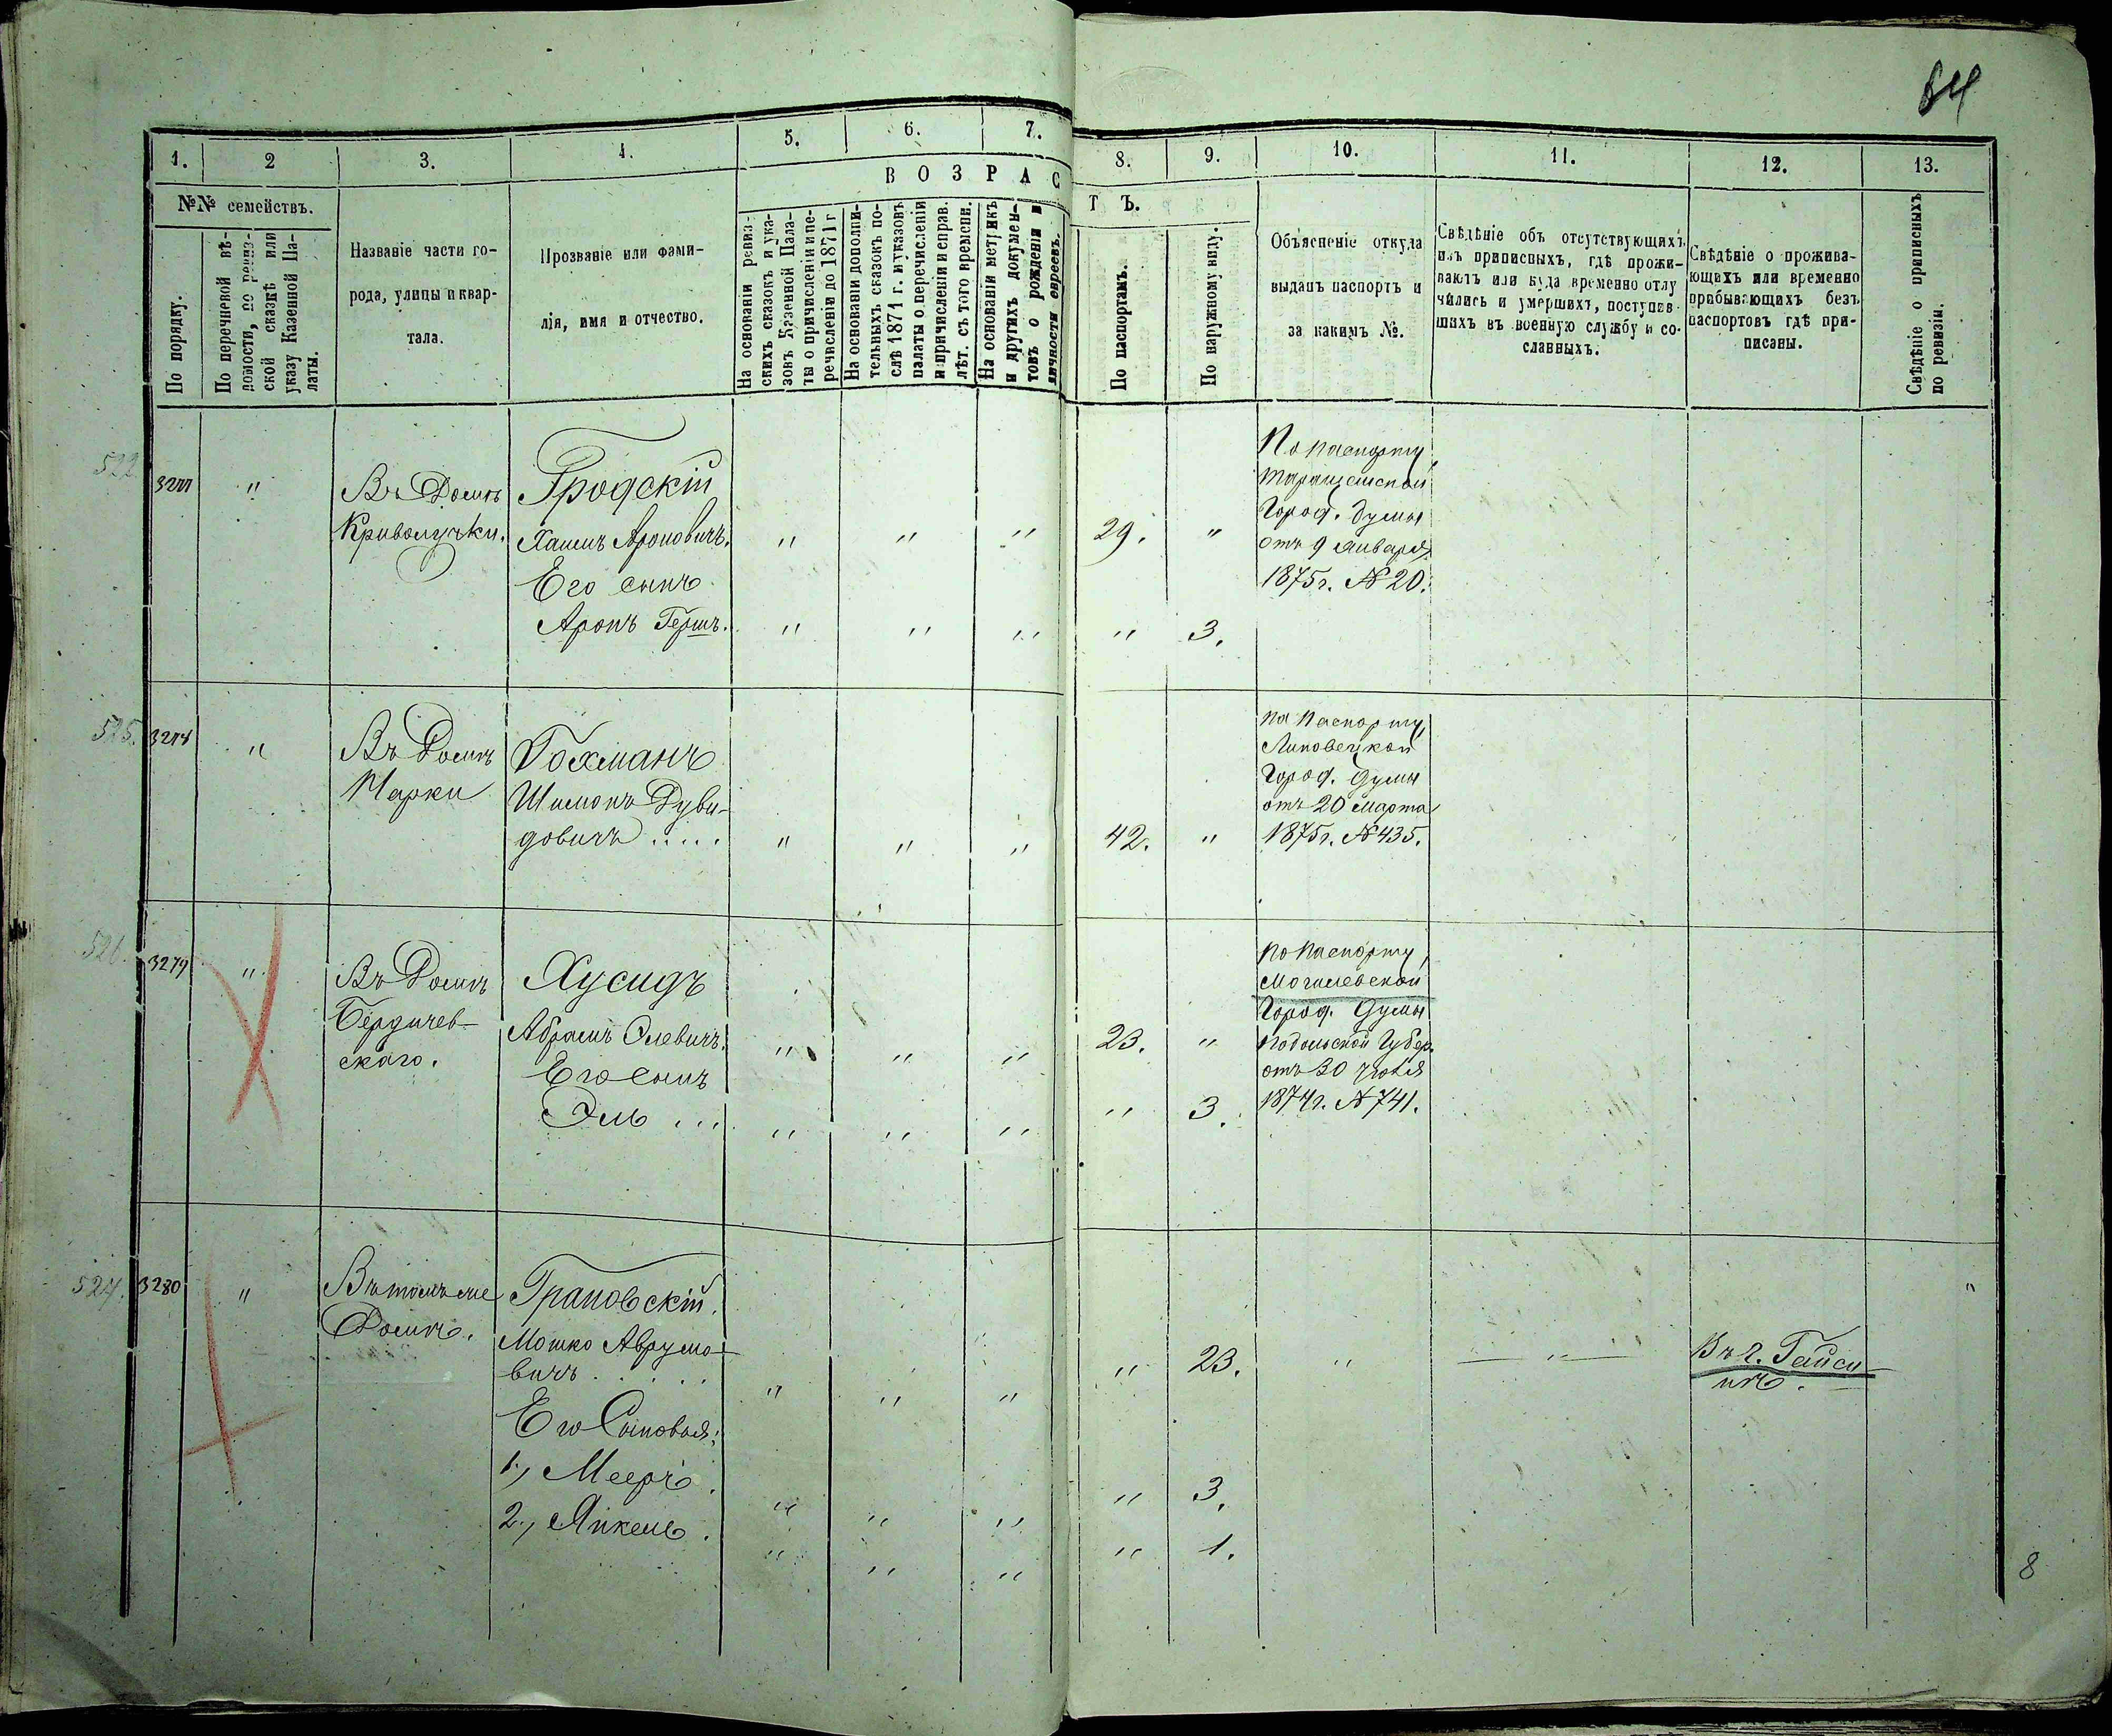 64
1. 2 3. 4. 5. 6. 7. 8. 9. 10. 11. 12. 13.
№№ семействъ.
ВОЗРАСТЪ.
По порядку.
По перечневой вѣ-
домости, по ревиз-
ской сказкѣ или
указу Казенной Па-
латы.
Названіе части го-
рода, улицы и квар-
тала.
Прозваніе или фами-
лія, имя и отчество.
На основаніи ревиз-
скихъ сказокъ и ука-
зовъ Казенной Пала-
ты о причисленіи и пе-
речисленіи до 1871 г
На основаніи дополни-
тельныхъ сказокъ по-
слѣ 1871 г. и указовъ
палаты о перечисленіи
и причисленіи и справ.
лѣт. съ того времени.
На основаніи метрикъ
и другихъ докумен-
товъ о рожденіи и
личности евреевъ.
По паспортамъ.
По наружному виду.
Объясненіе откуда
выданъ паспортъ и
за какимъ №.
Свѣдѣніе объ отсутствующихъ
изъ приписныхъ, гдѣ прожи-
ваютъ или куда временно отлу
чились и умершихъ, поступив-
шихъ въ военную службу и со-
сланныхъ.
Свѣдѣніе о прожива-
ющихъ или временно
прибывающихъ безъ
паспортовъ гдѣ при-
писаны.
Свѣдѣніе о приписныхъ
по ревизіи.
522
"
Въ Домѣ
Криволучки.
Гродскій
Хаимъ Ароновичъ. " " " 29. "
Его сынъ
Аронъ Гершъ. " " " " 3.
По паспорту
Таращанской
Город. Думы
отъ 9 Января
1875г. №20.
525. 3278 "
Въ Домѣ
Марки
Гохманъ
Шимонъ Дуви-
довичъ ..... " " " 42. "
По паспорту
Липовецкой
Город. Думы
отъ 20 Марта
1875г. №435.
526. 3279 "
Въ Домѣ
Бердичев-
скаго.
Хусидъ
Абрамъ Элевичъ. " " " 23. "
Его сынъ
Эль ... " " " " 3.
По паспорту
Могилевской
Город. Думы
Подольской Губер.
отъ 30
1874г. №741.
524. 3280 "
Въ томъ же
Домѣ.
Грановскій.
Мошко Аврумо-
вичъ ..... " " " " 23. " — " —
Въ г. Гайси-
нѣ.
"
Его Сыновья:
1., Мееръ . " " " " 3.
2., Янкель . " " " " 1.
8